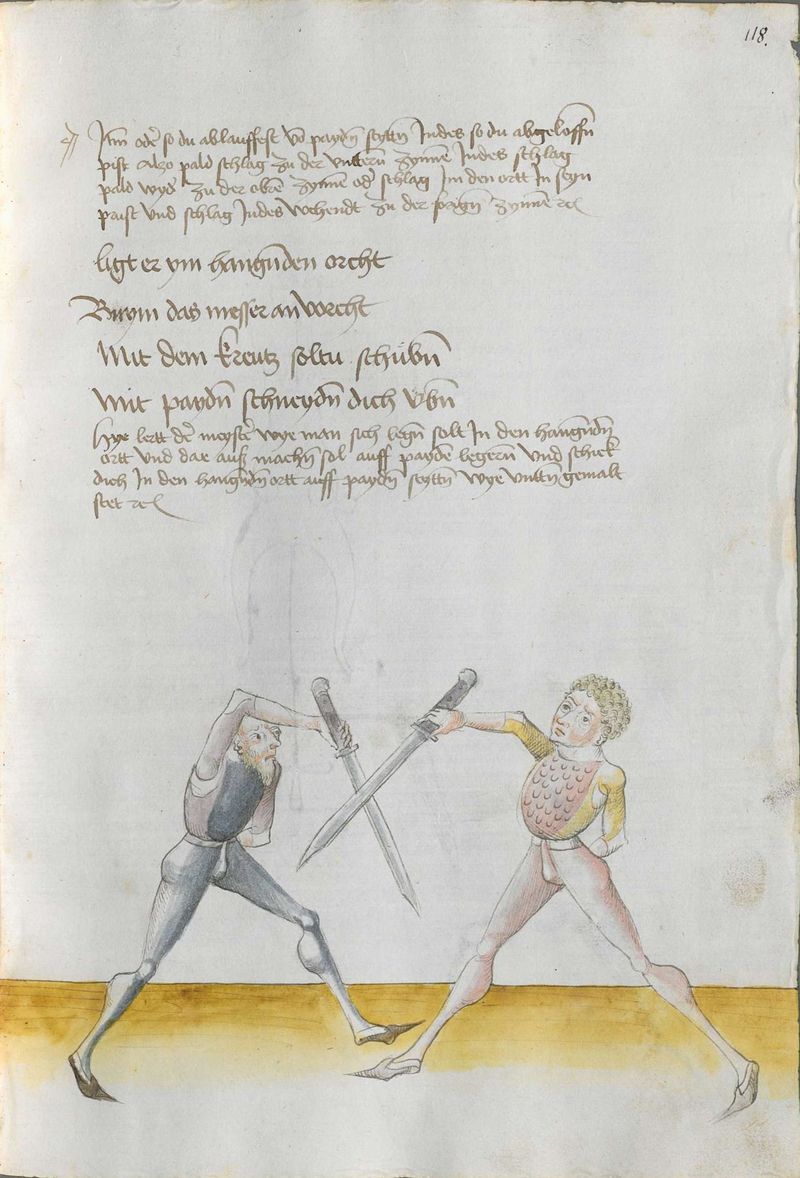 118.
Itm̄ oder̄ so du ablauffest vō paydn̄ seyttn̄ Indes so du abgeloffn̄
pist Alzo pald schlag zu der vntternn̄ zynnē Indes schlag
pald wyder̄ zu der obrē zynnē oder̄ schlag Im den ortt In seyn
prust vnd schlag Indes wehendt zu der zynnē
ligt er ym hangn̄den orcht
Blym das messer an vorcht
Mit dem kreutz soltu schübn̄
Mit paydn̄ schneydn̄ dich vbn̄
Hye lertt der̄ meyster̄ wye man sich legn̄ solt In den hangn̄dn̄
ortt vnd dar auß machn̄ sol auff paydē legern̄ vnd schick
dich In den hangn̄dn̄ ortt auff paydn̄ seyttn̄ wye vnttn̄ gemalt
stet